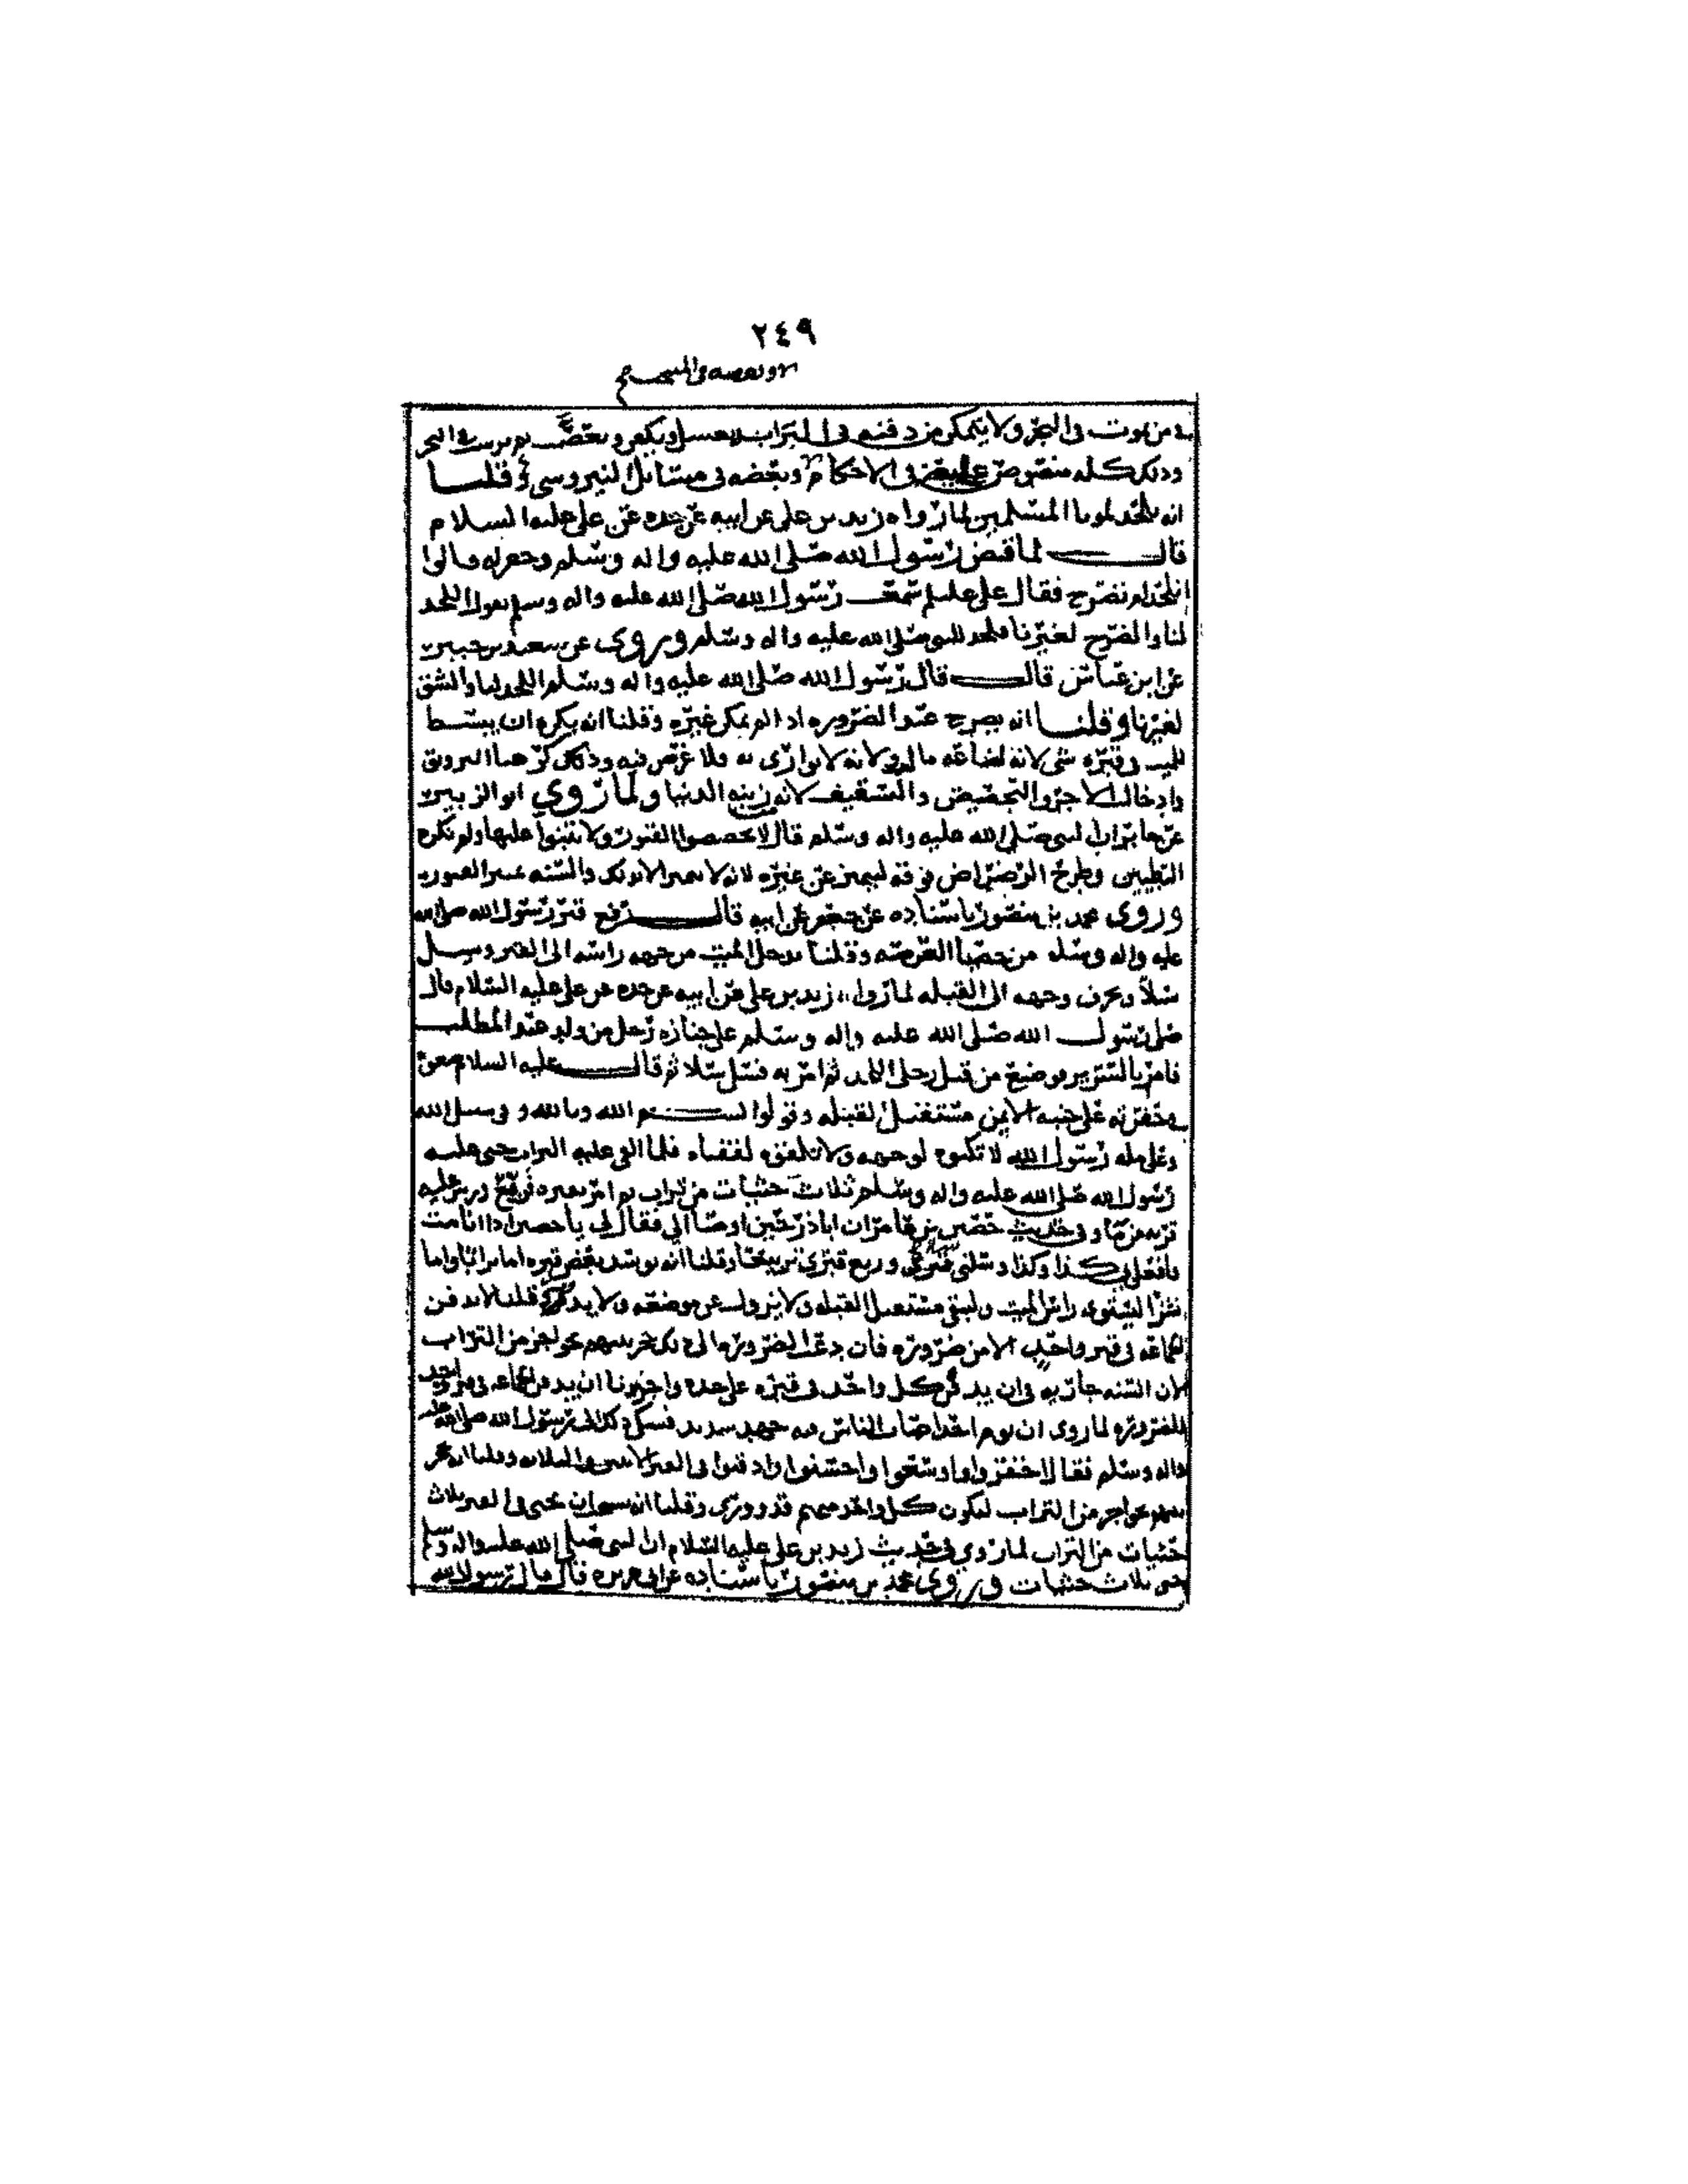 ٢٤٩
في من يموت في البحر ولا يتمكن من دفنه في التراب يغسل ويكفن ثم يرسب في البحر
وذلك كله منصوص عليه في الاحكام وبعضه في مسائل النيروسي وقلنا
انه يلحد لموتا المسلمين لما رواه زيد بن علي عن ابيه عن جده عن علي عليه السلام
قال لما قبض رسول الله صلى الله عليه واله وسلم وحفر له قالوا
انلحد ام نضرح فقال علي عليلم سمعت رسول الله صلى الله عليه واله وسلم يقول اللحد
لنا والضرح لغيرنا فلحد للنبي صلى الله عليه واله وسلم وروي عن سعيد بن جبير
عن ابن عباس قال قال رسول الله صلى الله عليه واله وسلم اللحد لنا والشق
لغيرنا وقلنا انه يضرح عند الضروره اذا لم يمكن غيره وقلنا انه يكره ان يبسط
للميت في قبره شي لانه اضاعه مال ولانه لا يوارى به ولا غرض فيه وذلك كرهنا التزويق
وادخال الاجر والتجصيص والتسقيف لانه زينه الدنيا ولما روي ابو الزبير
عن جابر ان النبي صلى الله عليه واله وسلم قال لا تجصصوا القبور ولا تبنوا عليها ولم نكره
التطيين وطرح الرضراض فوقه ليميز عن غيره لانه لا يتميز الا بذلك والسنه تمييز القبور
وروى محمد بن منصور باسناده عن جعفر عن ابيه قال رفع قبر رسول الله صلى الله
عليه واله وسلم من حصبا العرصه وقلنا يدخل الميت من جهه راسه الى القبر ويسل
سلا ويحرف وجهه الى القبله لما رواه زيد بن علي عن ابيه عن جده عن علي عليه السلام قال
صلى رسول الله صلى الله عليه واله وسلم على جنازه رجل من ولد عبد المطلب
فامر بالسرير فوضع من قبل رجلي اللحد ثم امر به فسل سلا ثم قال عليه السلام ضعوه
في حفرته على جنبه الايمن مستقبل القبله وقولوا بسم الله وبالله وفي سبيل الله
وعلى مله رسول الله لا تكبوه لوجهه ولا تلقوه لقفاه فلما القي عليه التراب حثى عليه
رسول الله صلى الله عليه واله وسلم ثلاث حثيات من تراب ثم امر بقبره فربع ورش عليه
قربه من ما وفي حديث حصين بن عامر ان ابا ذر حين اوصا الي فقال لي يا حصين اذا انا مت
فافعل بي كذا وكذا وسلني وربع قبري تربيعا وقلنا انه يوسد بعض قبره اما ترابا واما
نشزا ليستوي راس الميت وليبقى مستقبل القبله ولا يزول عن موضعه ولا قلنا لا يدفن
الجماعه في قبر واحد الا من ضروره فان دعت الضروره الى ذلك حجز بينهم بحواجز من التراب
لان السنه جاريه في ان يدفن كل واحد في قبره على حده واجزنا ان يدفن الجماعه في قبر واحد
للضروره لما روي ان يوم احد اصاب الناس فيه جهد شديد فشكي ذلك الى رسول الله صلى الله عليه
واله وسلم فقال احفزوا واوسعوا واحسنوا وادفنوا في القبر الاثنين والثلاثه وقلنا انه يحجز
بينهم بحواجز من التراب ليكون كل واحد منهم قد ووري وقلنا انه يستحب ان يحثى في القبر ثلاث
حثيات من التراب لما روي في حديث زيد بن علي عليه السلام ان النبي صلى الله عليه واله وسلم
حثى ثلاث حثيات وروى محمد بن منصور باسناده عن ابي هريره قال قال رسول الله